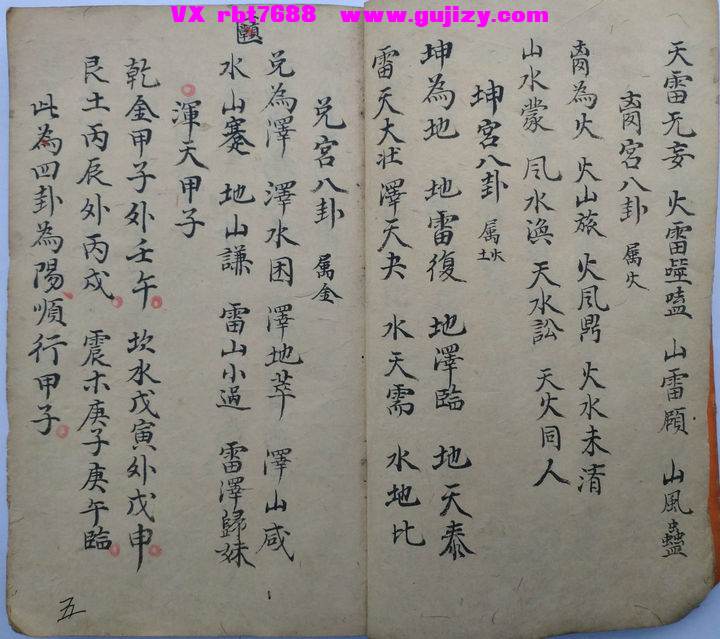 VX rbt7688 www.gujizy.com
天雷无妄 火雷噬嗑 山雷頤 山風蠱
离宮八卦 属火
离為火 火山旅 火风鼎 火水未济
山水蒙 风水渙 天水訟 天火同人
坤宮八卦 属土
坤為地 地雷復 地澤臨 地天泰
雷天大壮 澤天夬 水天需 水地比
兑宮八卦 属金
兑為澤 澤水困 澤地萃 澤山咸
水山蹇 地山謙 雷山小過 雷澤歸妹
渾天甲子
乾金甲子外壬午 坎水戊寅外戊申
艮土丙辰外丙戍 震木庚子庚午臨
此為四卦為陽順行甲子
五